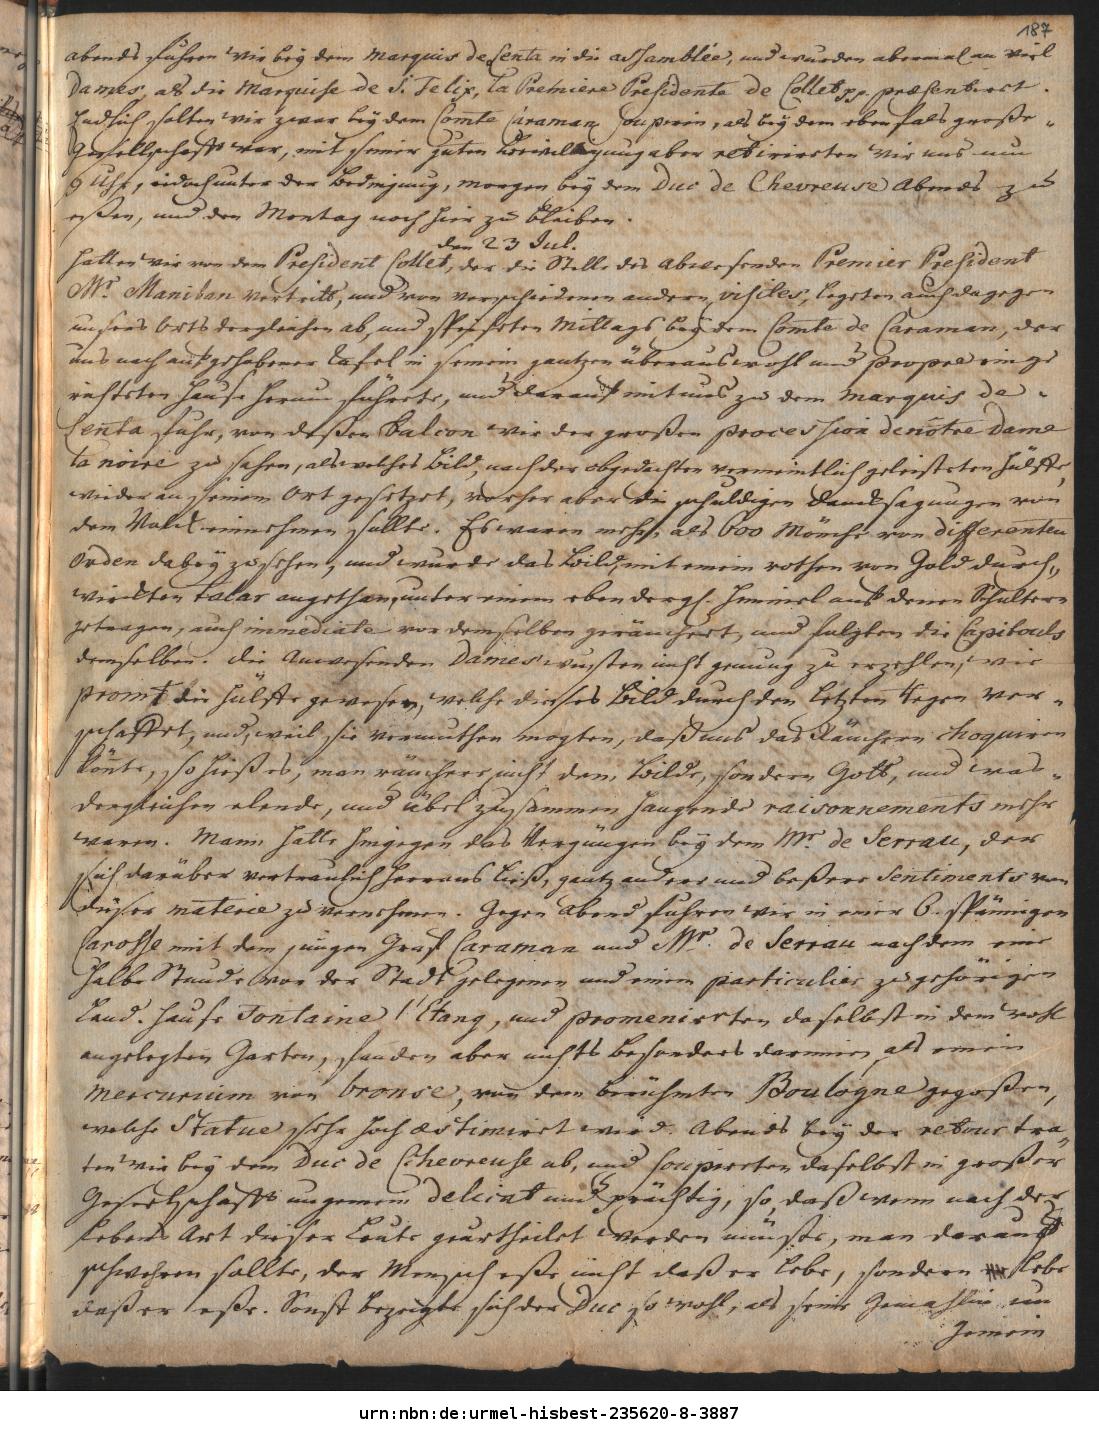 187
abends fuhren wir bey dem Marquis de Senta in die assamblée, und wurden abermal an viel
Dames, als die Marquise de S. Felix, la Premiere Presidente de Collet pp. præsentiret.
Endlich solten wir zwar bey dem Comte Caraman soupiren, als bey dem ebenfals große
Gesellschafft war, mit seiner guten bewilligung aber retirirten wir uns um
9 Uhr, iedoch unter der Bedingung, morgen bey dem Duc de Chevreuse Abends zu
eßen, und den Montag noch hier zu bleiben.
den 23 Jul.
Hatten wir von dem President Collet, der die Stelle des abwesenden Premier President
Mr. Maniban vertritt, und von verschiedenen andern, visites, legten auch dagegen
unsers Orts dergleichen ab, und speiseten Mittags bey dem Comte de Caraman, der
uns nach aufgehabener Tafel in seinem gantzen überaus wohl und propre einge
richteten Hause herum führete, und darauf mit uns zu dem Marquis de
Senta fuhr, von deßen Balcon wir der großen procession de nôtre Dame
la noire zu sahen, als welches Bild, nach der obgedachten vermeintlich geleisteten Hülffe,
wieder an seinem Ort gesetzet, vorher aber die schuldigen Dancksagungen von
dem Volck einnehmen sollte. Es waren mehr als 600 Mönche von differenten
Orden dabey zusehen, und wurde das Bild mit einem rothen von Gold durch„
wirckten talar angethan, unter einem eben dergl. Himmel auf denen Schultern
getragen, auch immediate vor demselben geräuchert, und folgten die Capitouls
demselben. Die anwesenden Dames wusten nicht genung zu erzehlen, wie
promt die Hülffe gewesen, welche dieses Bild durch den letzten Regen ver„
schaffet, und, weil sie vermuthen mogten, daß uns das Räuchern choquiren
könte, so hieß es, man räuchere nicht dem Bilde, sondern Gott, und was„
dergleichen elende, und übel zusammen hangende raisonnements mehr
waren. Mann hatte hingegen das Vergnügen bey dem Mr. de Serrau, der
sich darüber vertraulich heraus ließ, gantz andere und beßere Sentiments von
dieser materie zu vernehmen. Gegen Abend fuhren wir in einer 6. spännigen
Carosse mit dem jungen Graf Caraman und Mr. de Serrau nach dem eine
halbe Stunde von der Stadt gelegenen und einem particulier zugehörigen
Land-Hause Fontaine l'Etang, und promenirten daselbst in dem wohl
angelegten Garten, funden aber nichts besonders darinnen, als einen
Mercurium von bronse, von dem berühmten Boulogne gegoßen,
welche Statue sehr hoch æstimiret wird. Abends bey der retour tra
ten wir bey dem Duc de Chevreuse ab, und soupirten daselbst in großer
Gesellschafft ungemein delicat und prächtig, so, daß wenn nach der
Lebens Art dieser Leute geurtheilet werden müste, man darauf
schwehren sollte, der Mensch eße nicht daß er lebe, sondern lebe
daß er eße. Sonst bezeigte sich der Duc so wohl, als seine Gemahlin un
gemein
urn:nbn:de:urmel-hisbest-235620-8-3887